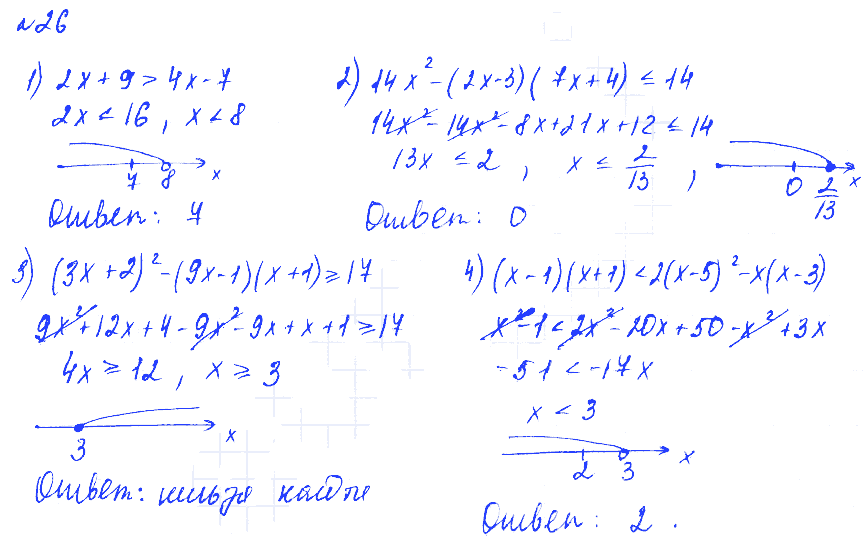 №26
1) 2x + 9 > 4x - 7
2x < 16, x < 8
7 8 x
Ответ: 7
2) 14x² - (2x-3)(7x+4) ≤ 14
14x² - 14x² - 8x + 21x + 12 ≤ 14
13x ≤ 2, x ≤ 2/13,
0 2/13 x
Ответ: 0
3) (3x+2)² - (9x-1)(x+1) ≥ 17
9x² + 12x + 4 - 9x² - 9x + x + 1 ≥ 17
4x ≥ 12, x ≥ 3
3 x
Ответ: нельзя найти
4) (x-1)(x+1) < 2(x-5)² - x(x-3)
x² - 1 < 2x² - 20x + 50 - x² + 3x
-51 < -17x
x < 3
2 3 x
Ответ: 2.